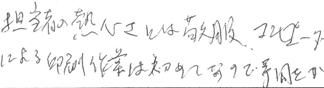 担当者の熱心さには敬服、コンピュータ
による印刷作業は初めてなので手間をか